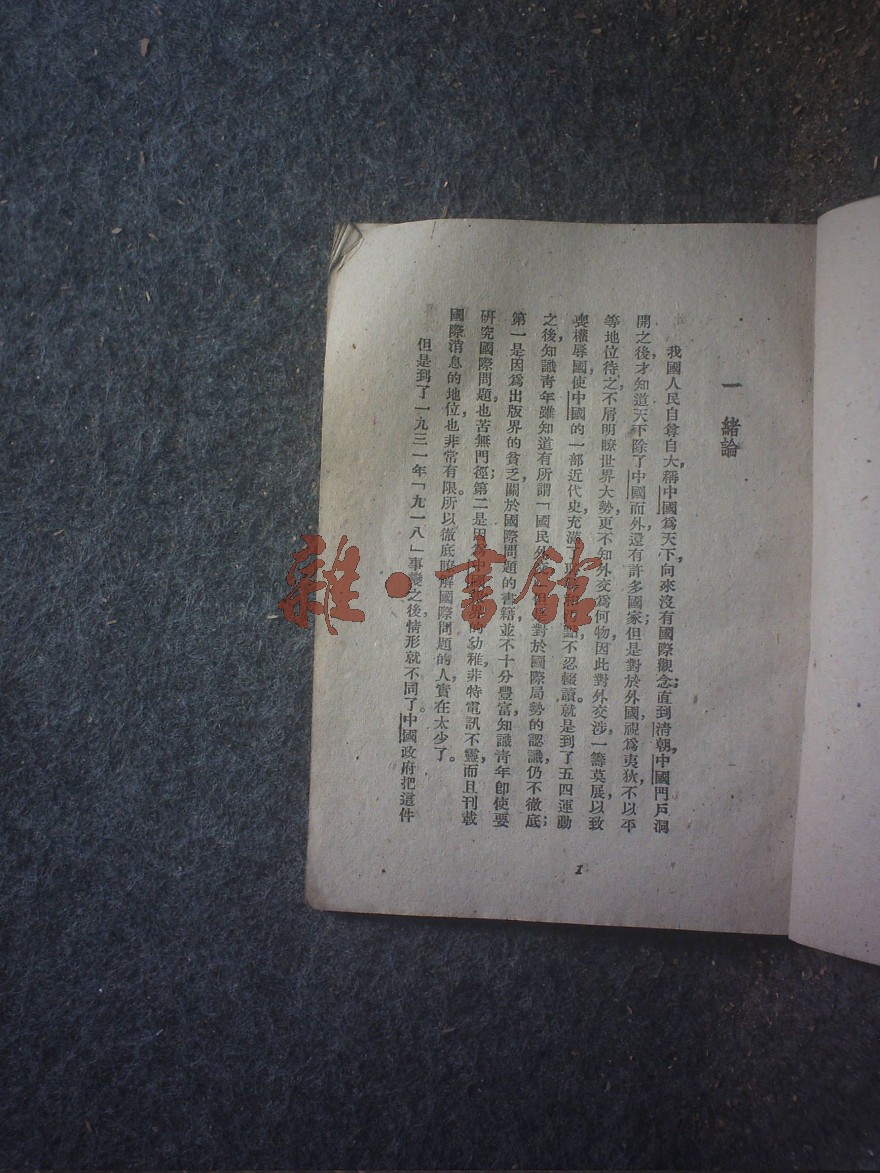 一 緒論
我國人民自尊自大，稱中國爲天下，向來沒有國際觀念；直到清朝，中國門戶洞
開之後，才知道天下除了中國而外，還有許多國家；但是對於外國，視爲夷狄，不以平
等地位待之，不屑明瞭世界大勢，更不知外交爲何物，因此對外交涉，一籌莫展，以致
喪權辱國，使中國的一部近代史，充滿了 不忍輟讀。就是到了五四運動
之後，知識靑年雖知道有所謂「國民外交」 對於國際局勢的認識，仍不徹底；
第一是因爲出版界的貧乏，關於國際問題的書籍並不十分豐富，知識靑年卽使要
研究國際問題，也苦無門徑；第二是因爲中國 的幼稚，非特電訊不靈，而且刊載
國際消息的地位，也非常有限。所以徹底瞭解國際問題的人，實在太少了。
但是到了一九三一年「九一八」事變之後，情形就不同了。中國政府把這件
1
雜·書館